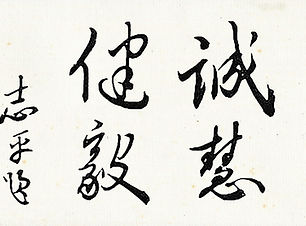 誠慧
健毅
志平